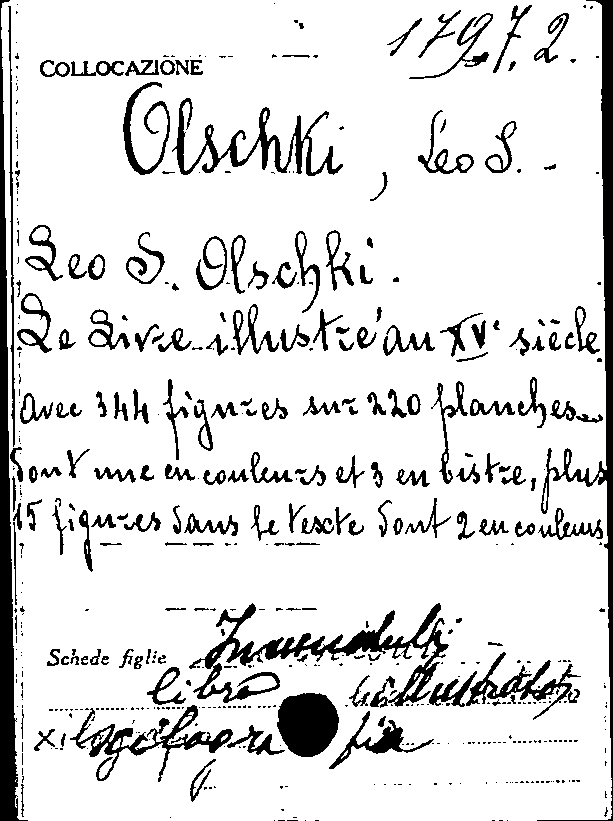 1797.2.
COLLOCAZIONE
Olschki, Leo S. -
Leo S. Olschki.
Le Livre illustré au XVe siècle
avec 344 figures sur 220 planches
dont une en couleurs et 3 en bistre, plus
15 figures dans le texte dont 2 en couleurs
Schede figlie Incunabuli
libro illustrato
xilografia